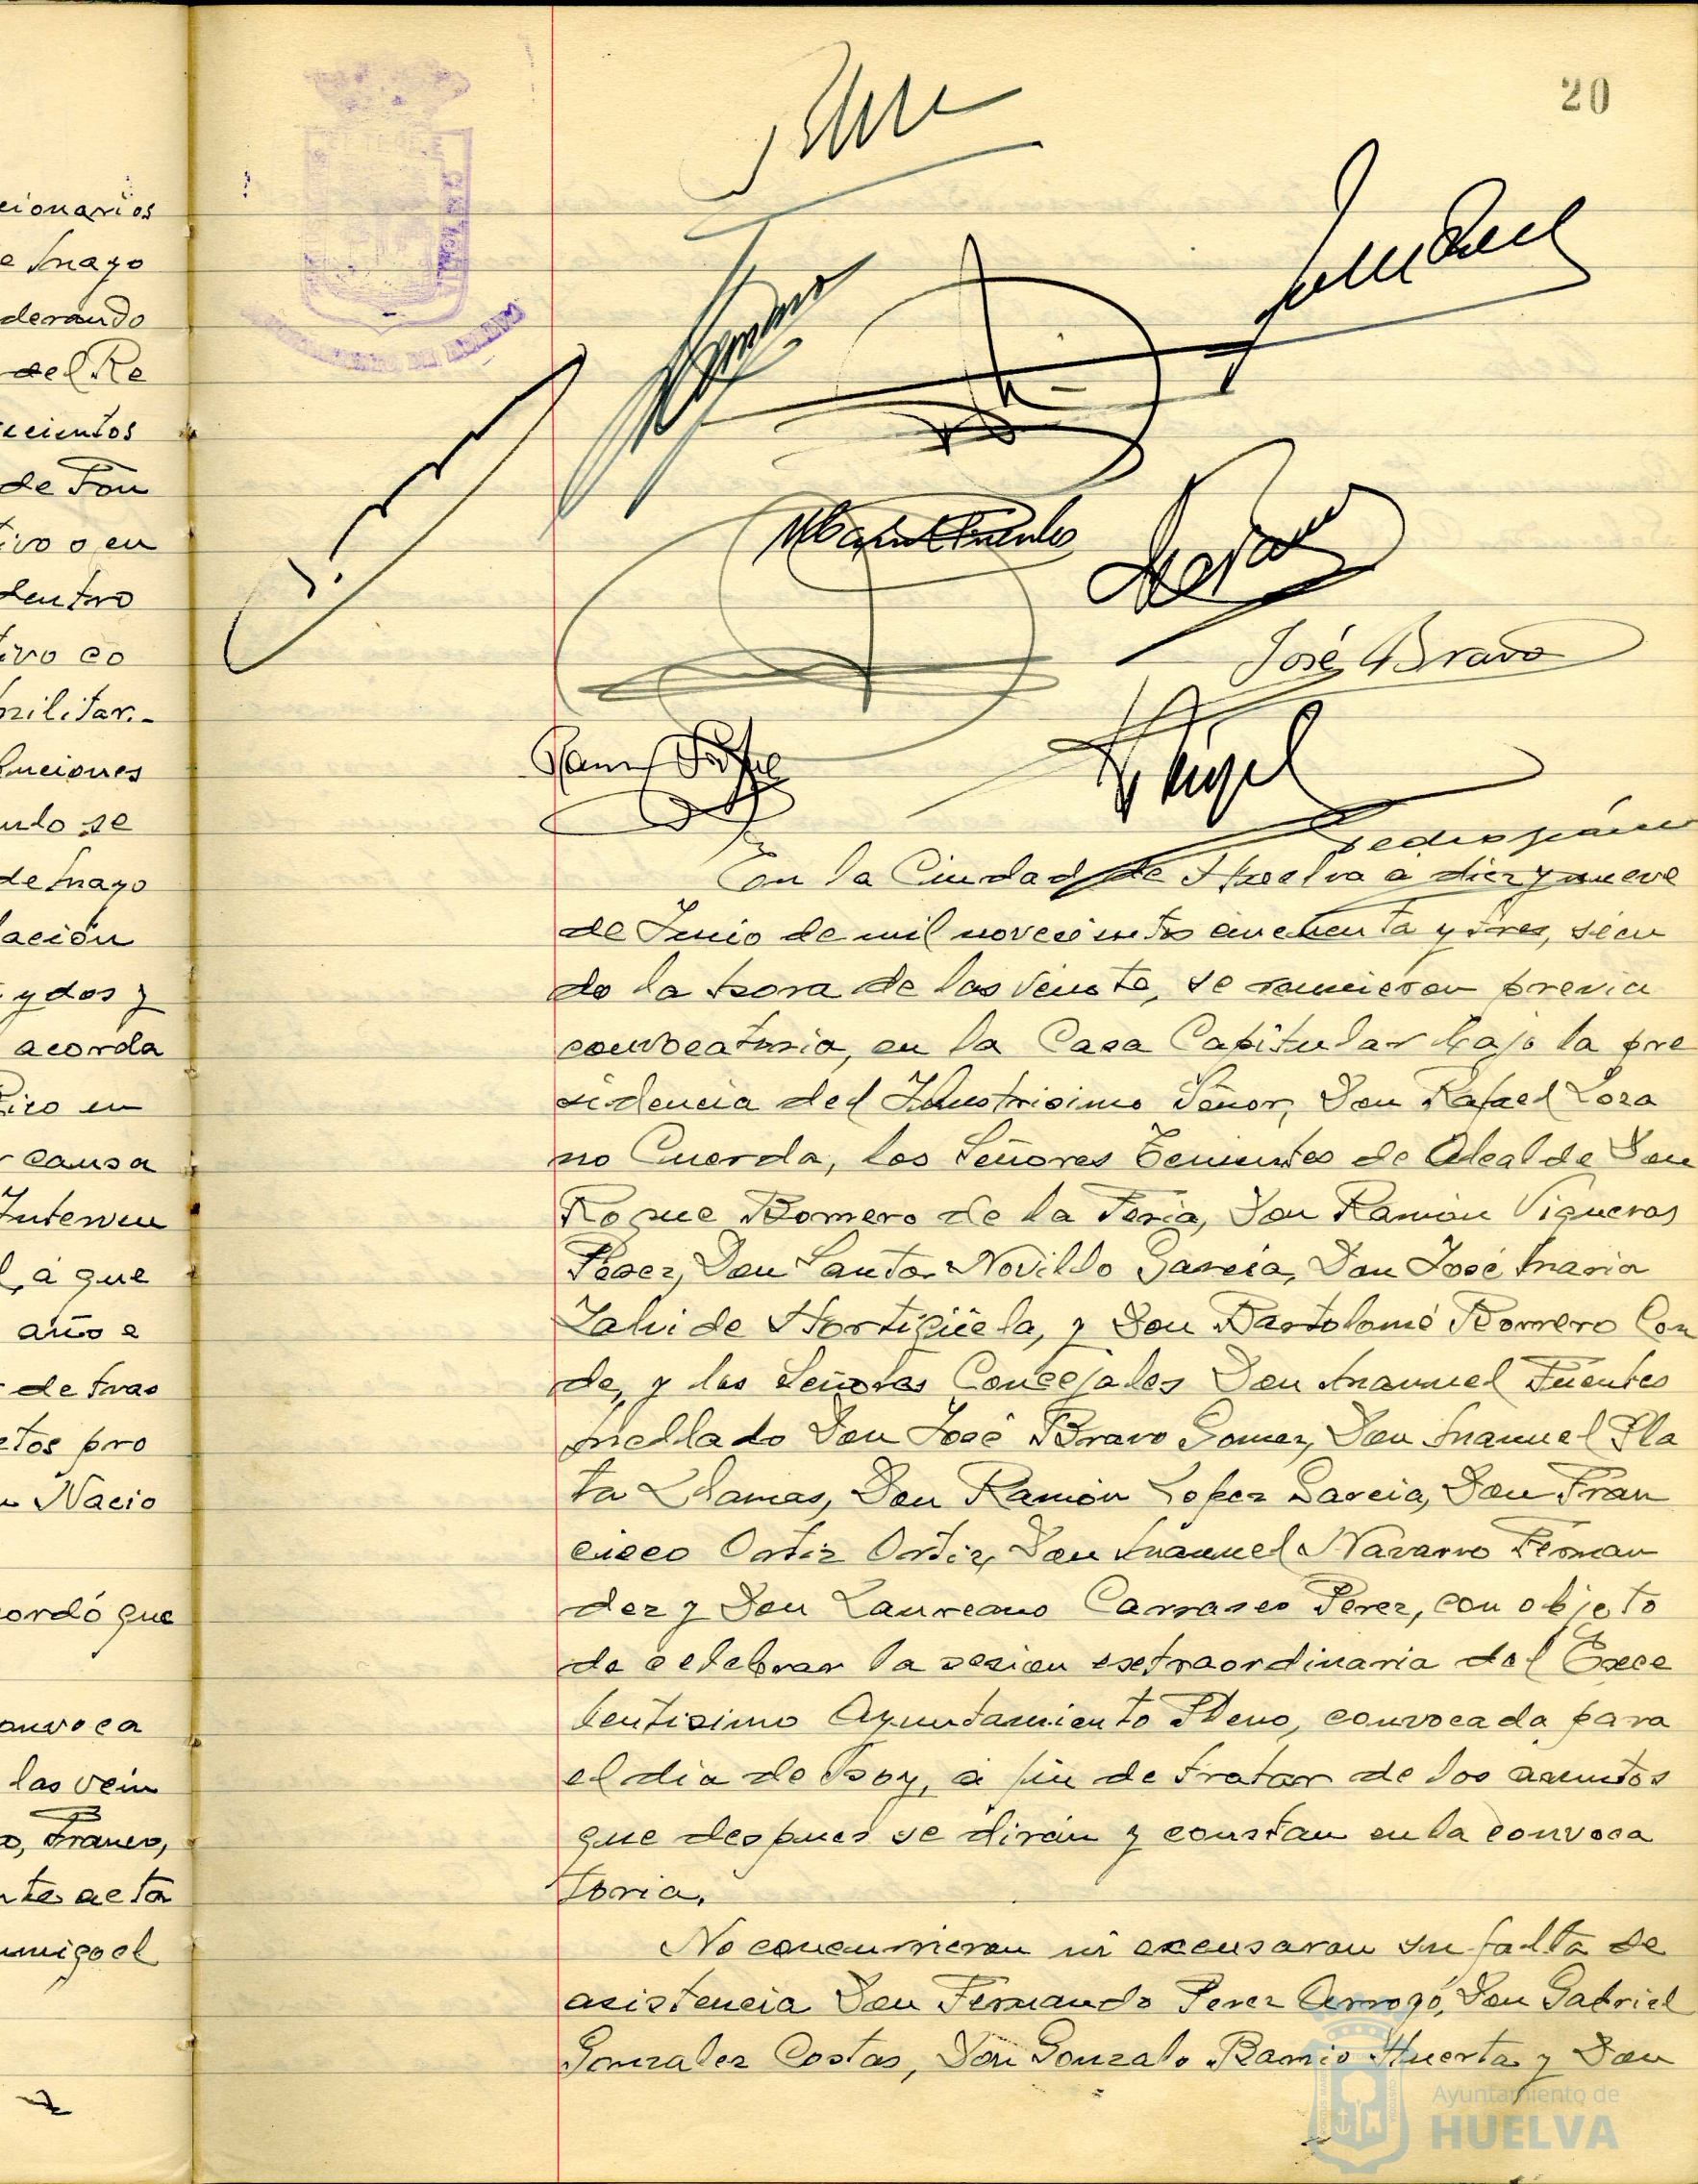 20
cionarios
e mayo
derando
del Re
cientos
de Fon
tivo o en
dentro
tivo co
militar.-
unciones
ulo se
de mayo
lación
y dos y
acorda
Pico en
r causa
Interven
l, a que
año e
de tras
etos pro
Nacio
cordó que
convoca
las vein
Franco,
nte acta
migo el
José Bravo
Rangel
En la Ciudad de Huelva a diez y nueve
de Junio de mil novecientos cincuenta y tres, sien
do la hora de las veinte, se reunieron previa
convocatoria, en la Casa Capitular bajo la pre
sidencia del Ilustrisimo Señor, Don Rafael Loza
no Cuerda, los Señores Tenientes de Alcalde Don
Roque Romero de la Feria, Don Ramón Vigueras
Perez, Don Santos Novillo Garcia, Don José Maria
Zalvide Hortigüela, y Don Bartolomé Romero Con
de, y los Señores Concejales Don Manuel Fuentes
Mellado Don José Bravo Gomez, Don Manuel Pla
ta Llamas, Don Ramón Lopez Garcia, Don Fran
cisco Ortiz Ortiz, Don Manuel Navarro Fernan
dez y Don Laureano Carrasco Perez, con objeto
de celebrar la sesion extraordinaria del Exce
lentisimo Ayuntamiento Pleno, convocada para
el dia de hoy, a fin de tratar de los asuntos
que despues se dirán y constan en la convoca
toria.
No concurrieron ni excusaron su falta de
asistencia Don Fernando Perez Arroyó, Don Gabriel
Gonzalez Costas, Don Gonzalo Ramio Huerta y Don
Ayuntamiento de
HUELVA